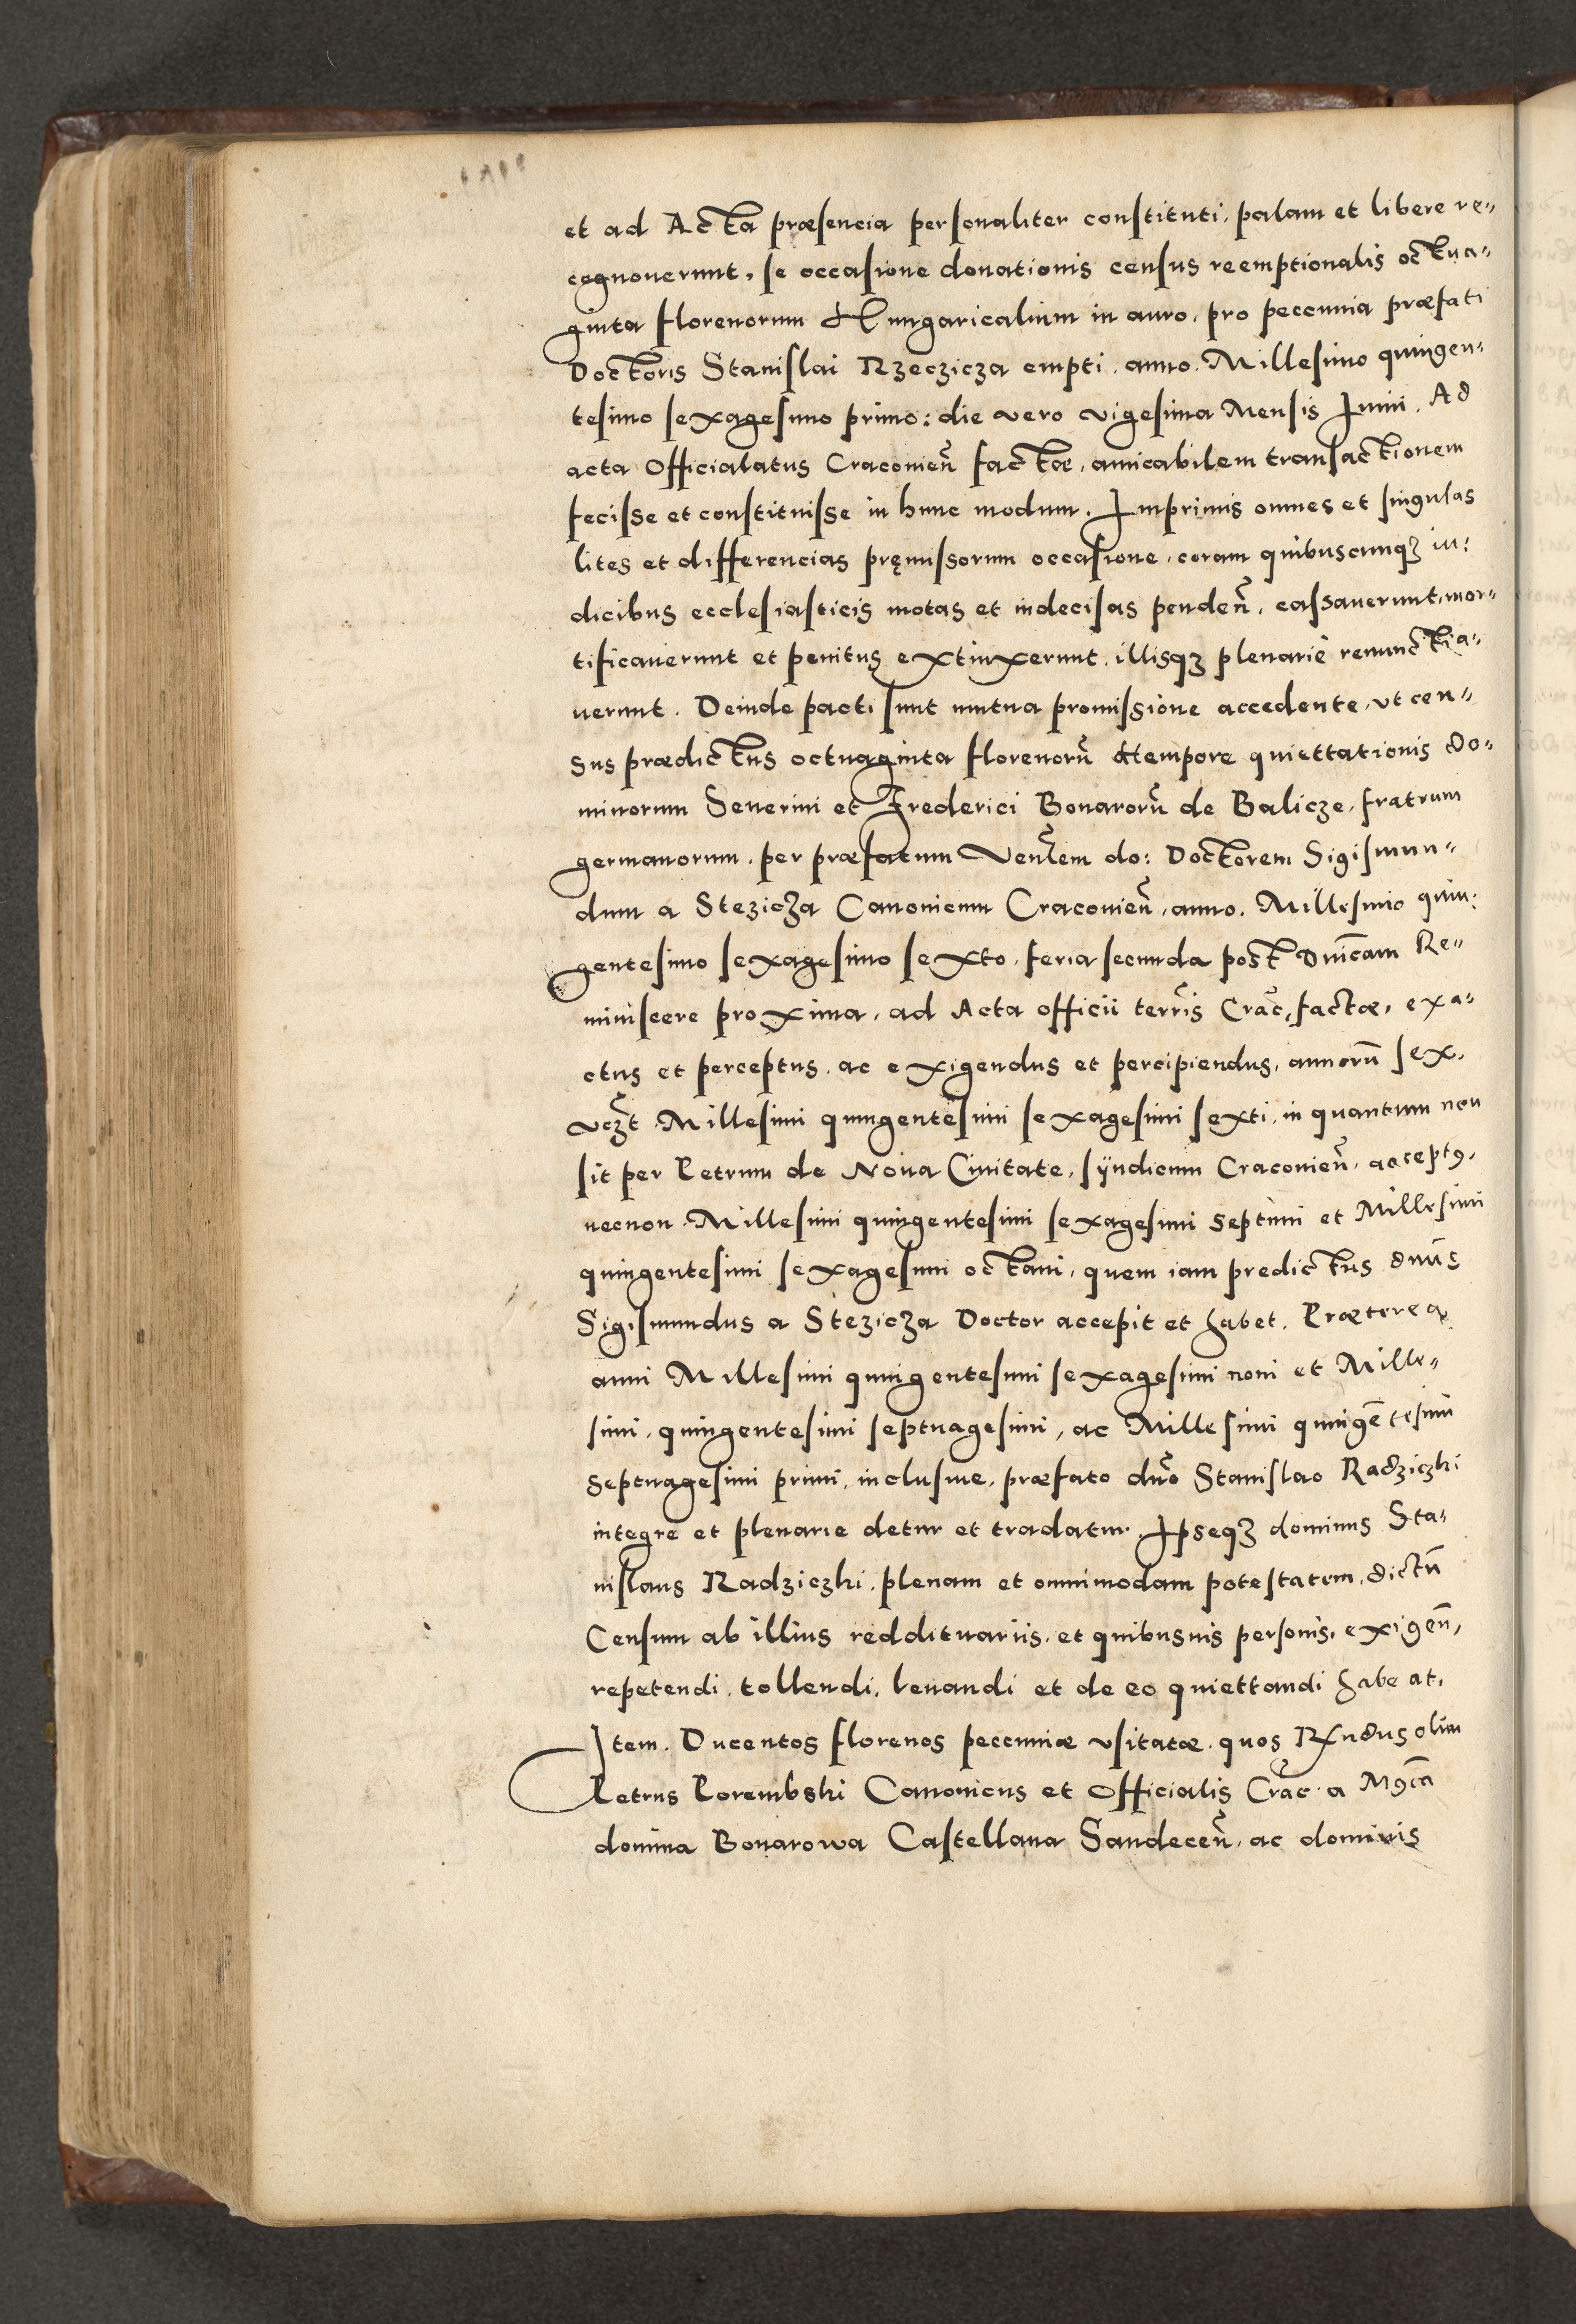 et ad Acta præsencia personaliter constituti, palam et libere re=
cognouerunt, se occasione donationis census reemptionalis octua=
ginta florenorum Hungaricalium in auro, pro peccunia præfati
Doctoris Stanislai Rzeczicza empti, anno. Millesimo quingen=
tesimo sexagesimo primo: die vero vigesima Mensis Iunii. Ad
acta Officialatus Cracouień factæ, amicabilem transactionem
fecisse et constituisse in hunc modum. Imprimis omnes et singulas
lites et differencias pręmissorum occasione, coram quibuscunqꝫ iu:
dicibus ecclesiasticis motas et indecisas pendeñ, cassauerunt, mor=
tificauerunt et penitus extinxerunt, illisqꝫ plenariè renunctia=
uerunt. Deinde pacti sunt mutua promissione accedente, vt cen=
sus prædictus octuaginta florenorũ à tempore quiettationis do=
minorum Seuerini et Frederici Bonarorũ de Balicze, fratrum
germanorum, per præfatum Venłem do: Doctorem Sigismun=
dum a Stezicza Canonicum Cracouień, anno. Millesimo quin:
gentesimo sexagesimo sexto, feria secunda post Dnicam Re=
miniscere proxima, ad Acta officii terris Crac, factæ, exa=
ctus et perceptus, ac exigendus et percipiendus, annorũ sex,
vczt Millesimi quingentesimi sexagesimi sexti, in quantum non
sit per Petrum de Noua Ciuitate, sÿndicum Cracouień, acceptꝰ,
necnon Millesimi quingentesimi sexagesimi septimi et Millesimi
quingentesimi sexagesimi octaui, quem iam predictus dnũs
Sigismundus a Stezicza Doctor accepit et habet. Præterea
anni Millesimi quingentesimi sexagesimi noni et Mille=
simi, quingentesimi septuagesimi, ac Millesimi quingẽtesimi
septuagesimi primi, inclusiue, præfato dño Stanislao Radziczki
integre et plenarie detur et tradatur. Ipseqꝫ dominus Sta=
nislaus Radziczki, plenam et omnimodam potestatem, dictũ
Censum ab illius reddituariis, et quibusuis personis, exigeñ,
repetendi, tollendi, leuandi et de eo quiettandi habeat.
Item. Ducentos florenos peccuniæ vsitatæ, quos Rndus olim
Petrus Porembski Canonicus et Officialis Crac a Mgca
domina Bonarowa Castellana Sandeceń, ac dominis